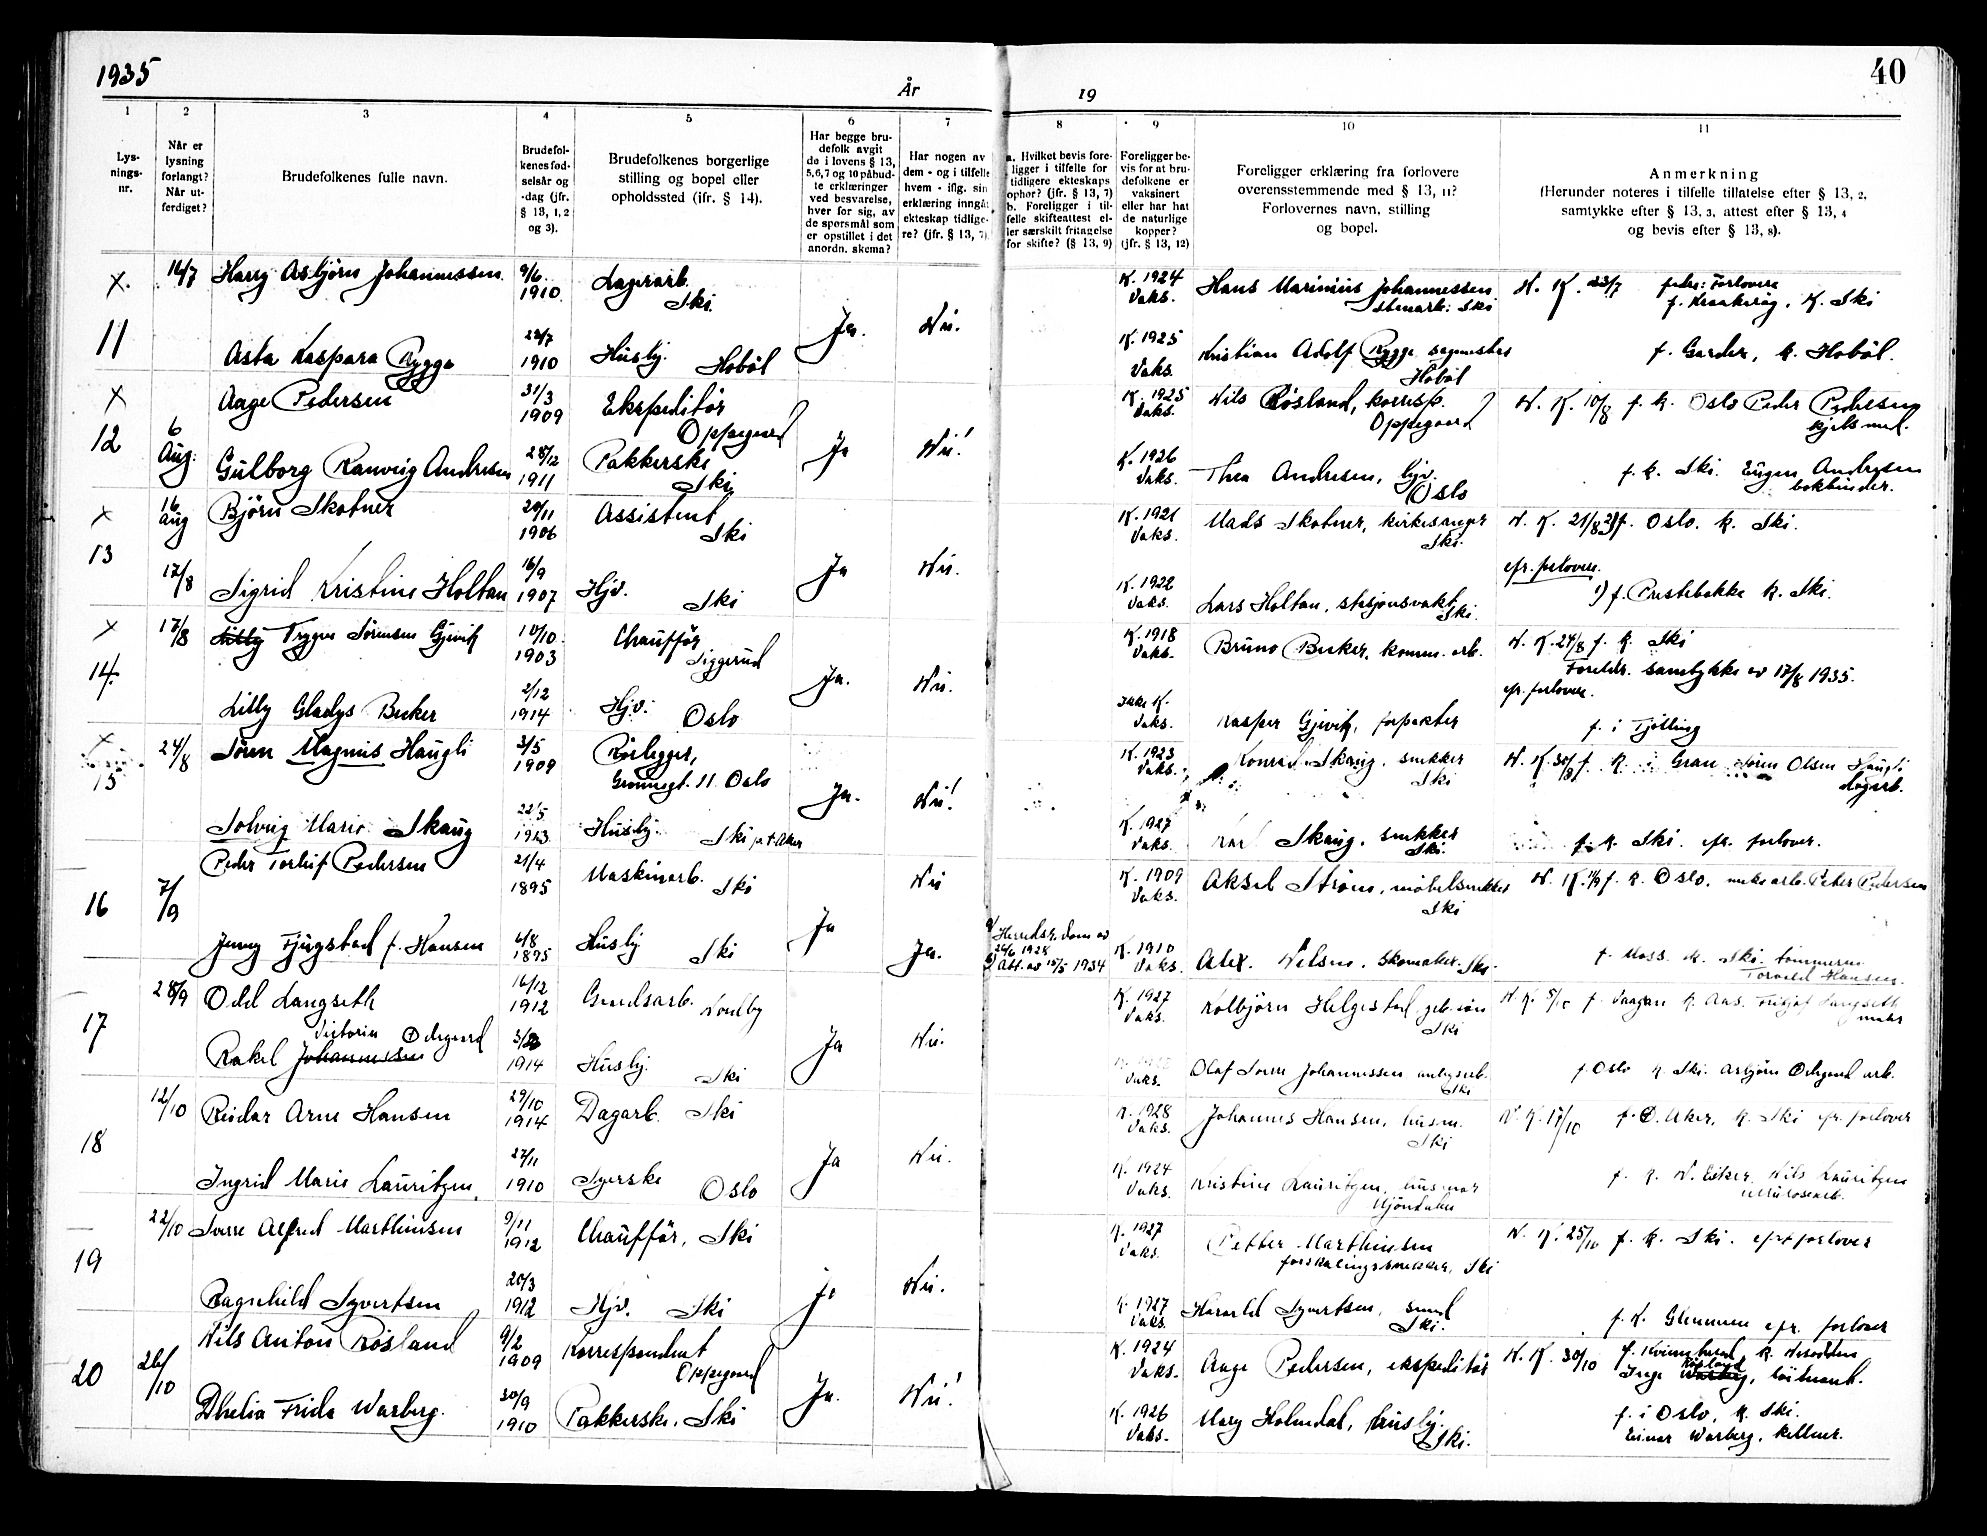 1935
År
19
40
1
2
3
4
5
6
7
8
9
10
11
Lys-
nings-
nr.
Når er
lysning
forlangt?
Når ut-
ferdiget?
Brudefolkenes fulle navn.
Brudefol-
kenes fød-
selsår og
-dag (jfr.
§ 13, 1, 2
og 3).
Brudefolkenes borgerlige
stilling og bopel eller
opholdssted (jfr. § 14).
Har begge bru-
defolk avgit
de i lovens § 13,
5, 6, 7 og 10 påbud-
te erklæringer
ved besvarelse,
hver for sig, av
de spørsmål som
er opstillet i det
anordn. skema?
Har nogen av
dem - og i tilfelle
hvem - iflg. sin
erklæring inngåt
ekteskap tidlige-
re? (jfr. § 13, 7)
a. Hvilket bevis fore-
ligger i tilfelle for
tidligere ekteskaps
ophør? (jfr. § 13, 7)
b. Foreligger i til-
felle skifteattest el-
ler særskilt fritagelse
for skifte? (§ 13, 9)
Foreligger be-
vis for at bru-
defolkene er
vaksinert
eller har hat
de naturlige
kopper?
(jfr. § 13, 12)
Foreligger erklæring fra forlovere
overensstemmende med § 13, 11?
Forlovernes navn, stilling
og bopel.
Anmerkning
(Herunder noteres i tilfelle tillatelse efter § 13, 2,
samtykke efter § 13, 3, attest efter § 13, 4
og bevis efter § 13, 8).
x 16/7 Harry Asbjørn Johannessen 9/6 1910 Lagerarb. Ski. K. 1924 Vaks. Hans Marinius Johannessen Stenarb. Ski N. K. 23/7 f. Kraakstad, K. Ski
11 Asta Kaspara Rygge 1910 Husbj. Hobøl Ja. Nei. K. 1925 Vaks. Kristian Adolf Rygge Hobøl f. Garder, K. Hobøl.
x Aage Pedersen 31/3 1909 Ekspeditør Oppegaard K. 1925 Vaks. Nils Røsland, korresp. Oppegaard N. K. 10/8 f. K. Oslo Peder Pedersen
12 6 Aug. Gulborg Ranveig Andresen 28/12 1911 Pakkerske Ski Ja Nei! K. 1926 Vaks. Thea Andresen, hjv. Oslo f. K. Ski. Eugen Andresen bokbinder.
x 16 aug Bjørn Skotner 20/11 1906 Assistent Ski K. 1921 Vaks. Mads Skotner, kirkesanger Ski. N. K. 21/8 f. Oslo. K. Ski.
13 17/8 Sigrid Kristine Holtan 16/9 1907 Hjv. Ski Ja Nei. K. 1922 Vaks. Lars Holtan, stasjonsvakt Ski. efr. forlovere. 1) f. Prestebakke K. Ski.
x 17/8 Lilly Trygve Sørensen Gjevik 10/10 1903 Chauffør Siggerud K. 1918 Vaks. Bruno Becker, komm. arb. N. K. 24/8 f. K. Ski
Foreldr. samtykke av 17/8 1935.
14. Lilly Gladys Becker 2/12 1914 Hjv. Oslo Ja. Nei. Ikke K. Vaks. Kasper Gjevik, forpakter efr. forlover. f. i Tjølling
x 24/8 Søren Magnus Haugli 3/5 1909 Rørlegger, Grønnegt. 11 Oslo K. 1923 Vaks. Konrad Skaug, snekker Ski N. K. 30/8 f. K. i Gran Søren Olsen Haugli dagarb.
15 Solveig Marie Skaug 22/5 1913 Husbj. Ski p.t. Aker Ja. Nei! K. 1927 Vaks. Karl Skaug, snekker Ski. f. K. Ski. efr. forlover.
Peder Torleif Pedersen 21/4 1895 Maskinarb. Ski Nei K. 1909 Vaks. Aksel Strøm, møbelsnekker Ski N. K. f. K. Oslo, Peter Pedersen
16 7/9 Jenny Fjugstad f. Hansen 6/8 1895 Husbj. Ski Ja Ja. a) Herredsr. dom av 26/6 1928 b) Att. av 15/5 1934 K. 1910 Vaks. Alex. Nilsen, skomaker. Ski. f. Moss. K. Ski. tømmerm. Torvald Hansen.
28/9 Odd Langseth 16/12 1912 Gaardsarb. Nordby K. 1927 Vaks. Kolbjørn Helgestad, gbr. søn Ski N. K. 5/10 f. Vaagan K. Aas. Fridtjof Langseth maler
17 Rakel Victoria Ødegaard Johannessen 1914 Husbj. Ski Ja Nei. Vaks. Olaf Johannessen anlegsarb. Ski f. Oslo K. Ski. Asbjørn Ødegaard arb.
12/10 Reidar Arne Hansen 29/10 1914 Dagarb. Ski K. 1928 Vaks. Johannes Hansen, husm. Ski N. K. 17/10 f. Ø. Aker, K. Ski efr. forlover
18 Ingrid Marie Lauritzen 27/11 1910 Syerske Oslo Ja Nei. K. 1924 Vaks. Kristine Lauritzen, husmor Mjøndalen f. K. N. Eiker. Nils Lauritzen
22/10 Sverre Alfred Marthinsen 9/11 1912 Chauffør, Ski K. 1927 Vaks. Petter Marthinsen forskalingssnekker, Ski N. K. 25/10 f. K. Ski. efr forlover
19 Ragnhild Syvertsen 20/3 1912 Hjv. Ski Ja Nei. K. 1927 Vaks. Harald Syvertsen, smed Ski. f. K. Glemmen efr. forlover
Nils Anton Røsland 9/2 1909 Korrespondent Oppegaard K. 1924 Vaks. Aage Pedersen, ekspeditør N. K. 30/10 f. Kvinesherad K. Nesodden Inge Røsland Warberg, løitnant.
20 26/10 Dhelia Frida Warberg. 30/9 1910 Pakkerske, Ski Ja. Nei! K. 1926 Vaks. Mary Holmdal, husbj. Ski. f. i Oslo, K. Ski. Einar Warberg, kelner.